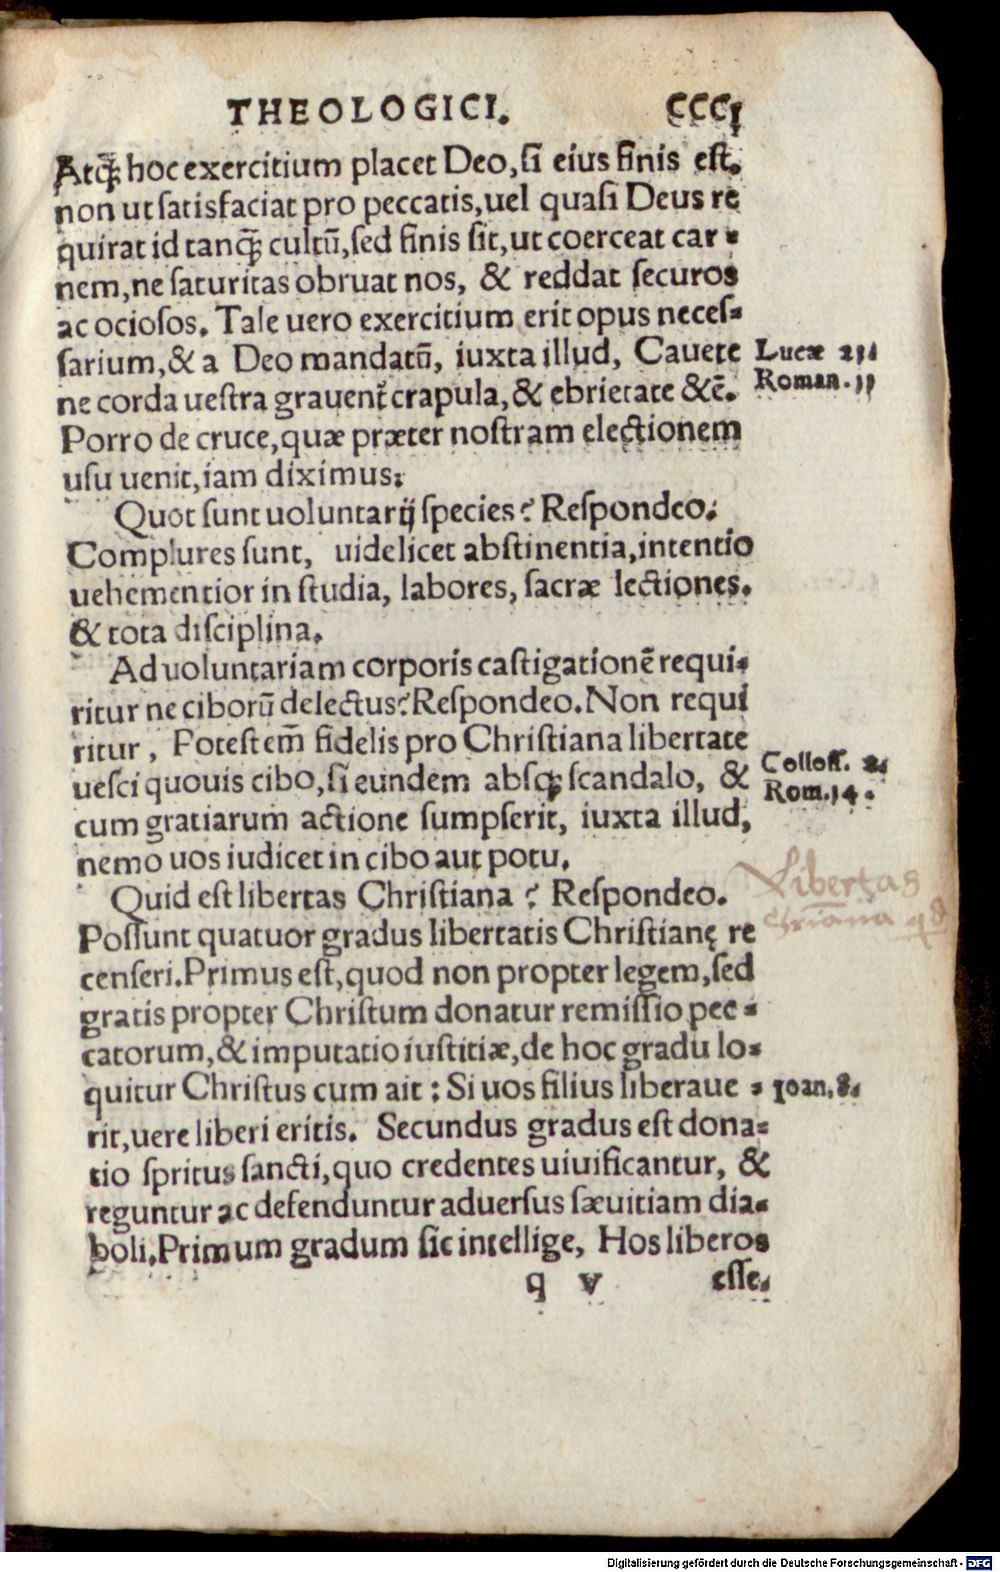 THEOLOGICI. CCCI
Atq̃ hoc exercitium placet Deo, si eius finis est.
non ut satisfaciat pro peccatis, uel quasi Deus re
quirat id tanq̃ cultū, sed finis sit, ut coerceat car-
nem, ne saturitas obruat nos, & reddat securos
ac ociosos. Tale uero exercitium erit opus neces-
sarium, & a Deo mandatū, iuxta illud, Cauete
Lucæ 21.
ne corda uestra grauent̃ crapula, & ebrietate &c̄.
Roman. 13
Porro de cruce, quæ præter nostram electionem
usu uenit, iam diximus.
Quot sunt uoluntarij species? Respondeo.
Complures sunt, uidelicet abstinentia, intentio
uehementior in studia, labores, sacræ lectiones.
& tota disciplina.
Ad uoluntariam corporis castigationē requi-
ritur ne ciborū delectus? Respondeo. Non requi
ritur, Potest em̄ fidelis pro Christiana libertate
uesci quouis cibo, si eundem absq; scandalo, &
Coloss. 2.
cum gratiarum actione sumpserit, iuxta illud,
Rom. 14.
nemo uos iudicet in cibo aut potu.
Quid est libertas Christiana? Respondeo.
Libertas
Possunt quatuor gradus libertatis Christianę re
christiana qd
censeri. Primus est, quod non propter legem, sed
gratis propter Christum donatur remissio pec-
catorum, & imputatio iustitiæ, de hoc gradu lo-
quitur Christus cum ait: Si uos filius liberaue-
Ioan. 8.
rit, uere liberi eritis. Secundus gradus est dona-
tio spritus sancti, quo credentes uiuificantur, &
reguntur ac defenduntur aduersus sæuitiam dia-
boli. Primum gradum sic intellige, Hos liberos
q v esse.
Digitalisierung gefördert durch die Deutsche Forschungsgemeinschaft - DFG